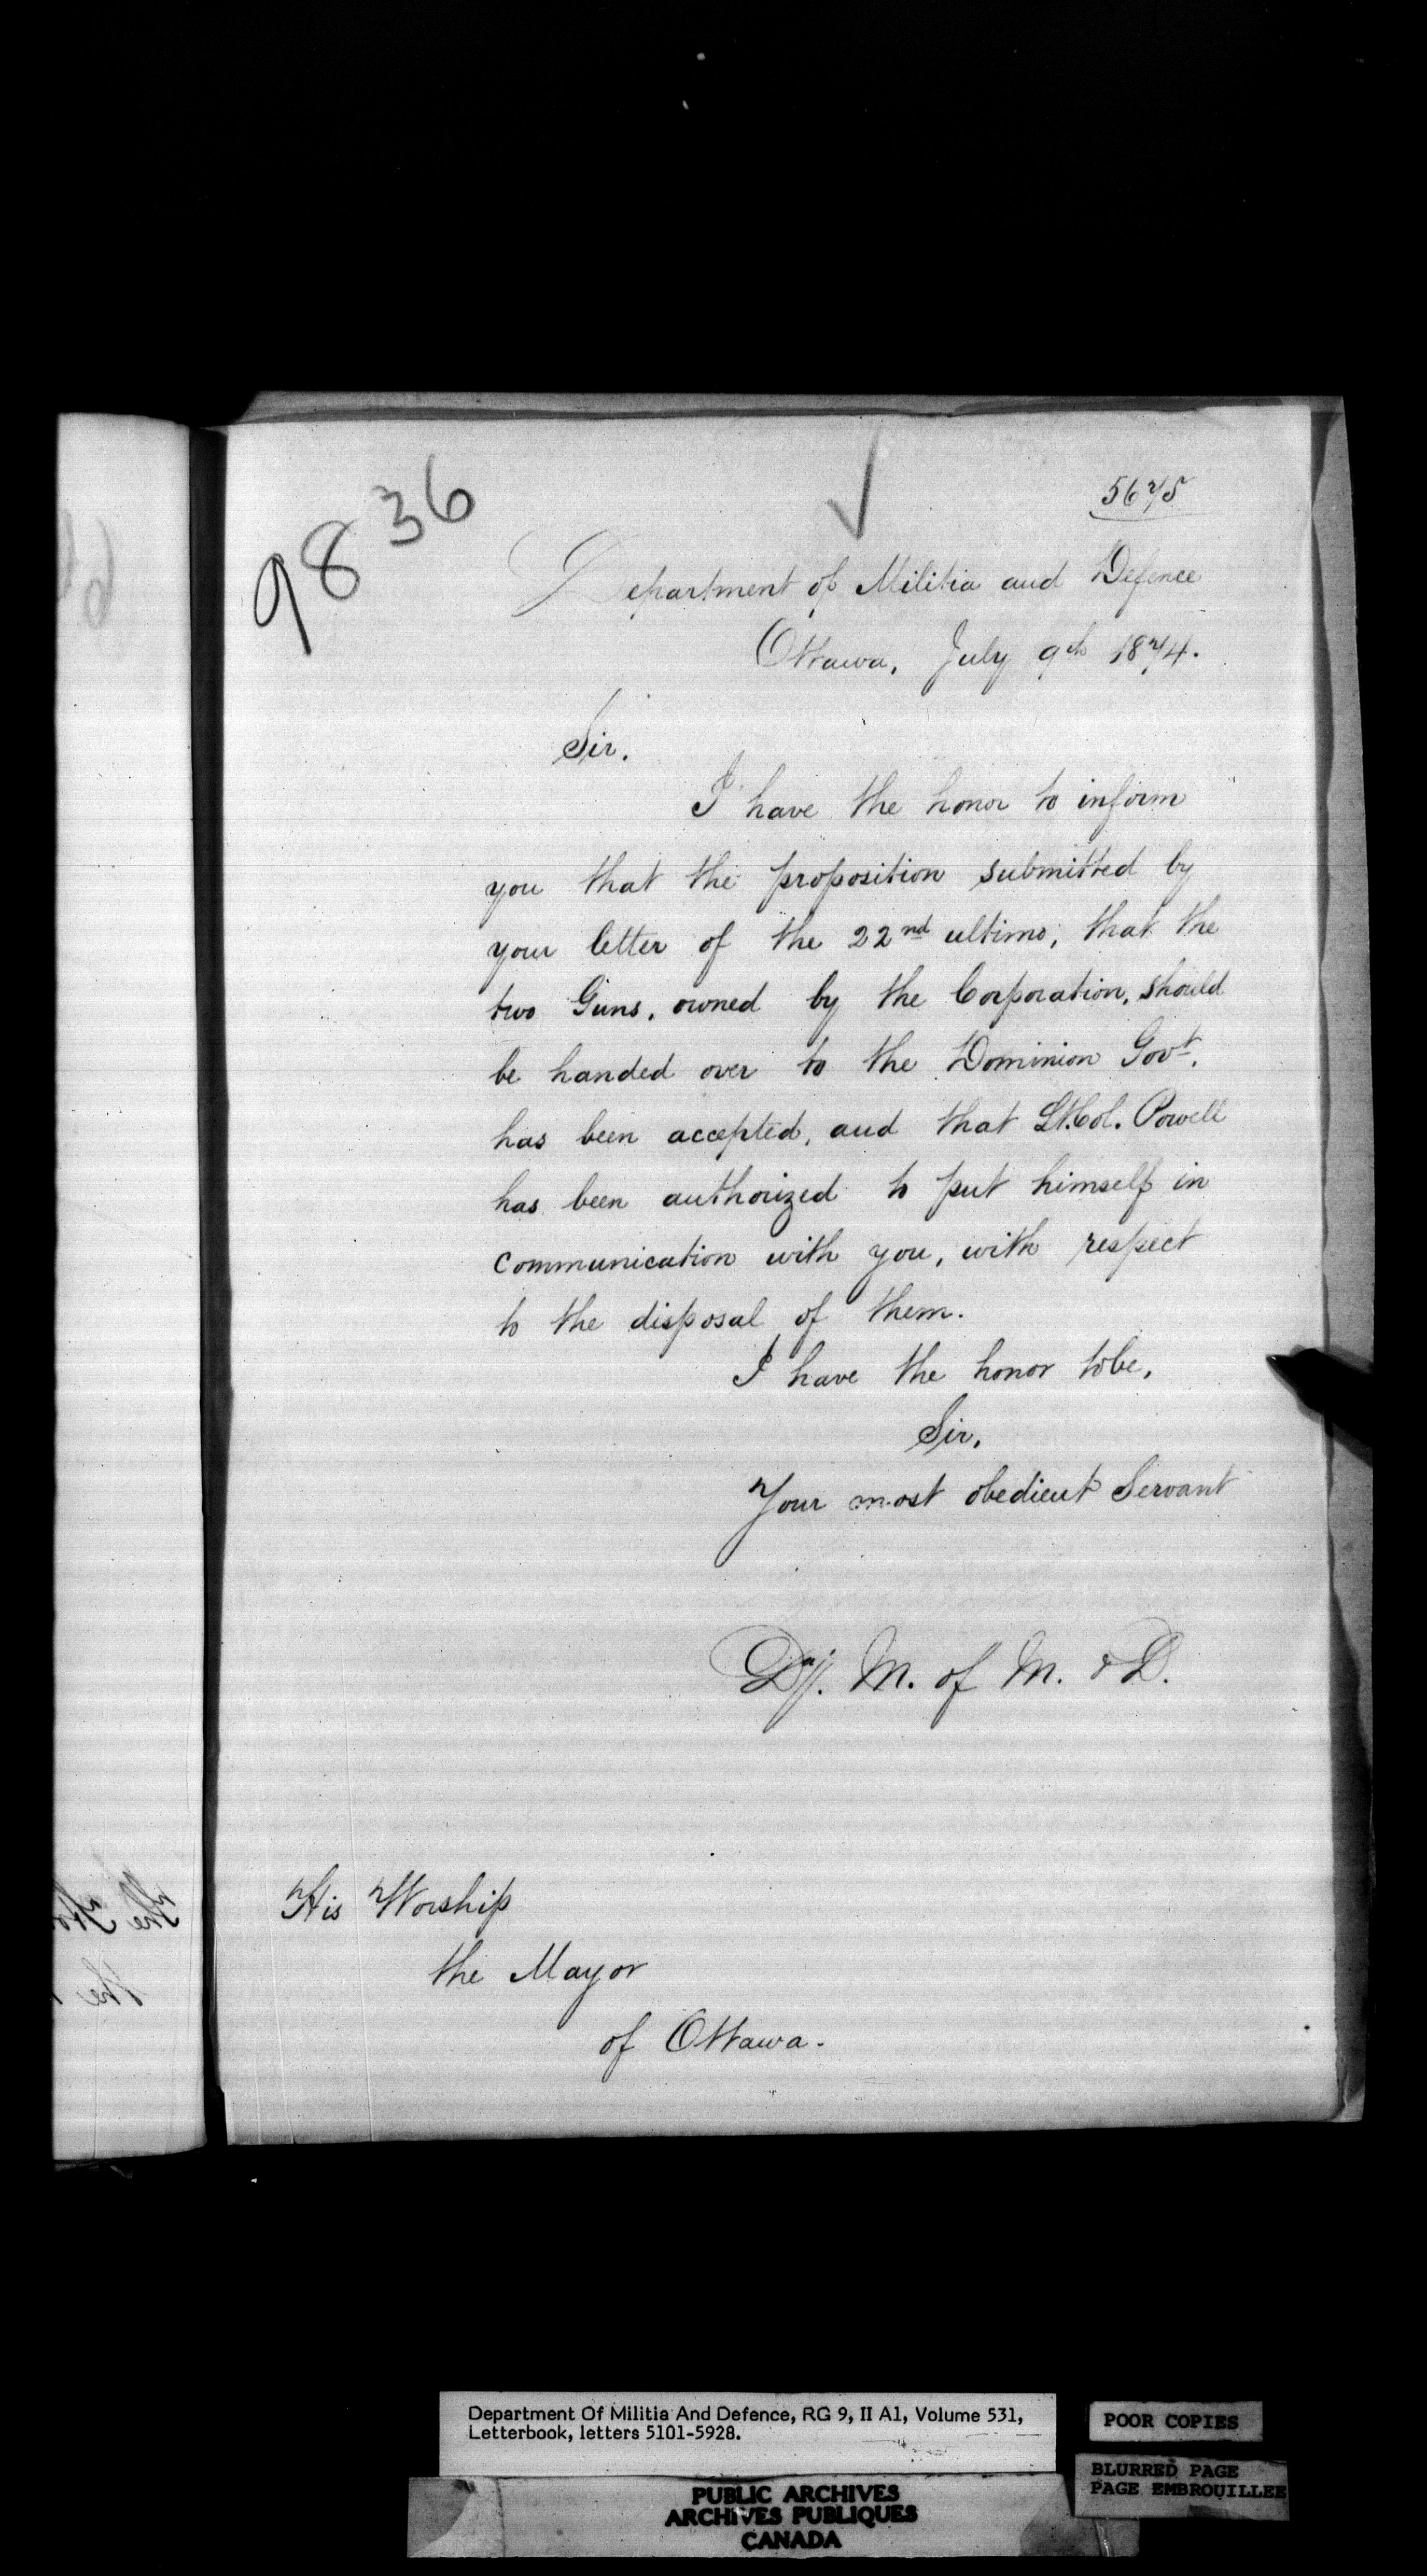 9836
5675
Department of Militia and Defence
Ottawa, July 9th 1874.
Sir.
I have the honor to inform
you that the proposition submitted by
your letter of the 22nd ultimo, that the
two Guns, owned by the Corporation, should
be handed over to the Dominion Govt.
has been accepted, and that Lt. Col. Powell
has been authorized to put himself in
communication with you, with respect
to the disposal of them.
I have the honor to be,
Sir,
Your most obedient Servant
Dy. M. of M. & D.
His Worship
the Mayor
of Ottawa.
Department Of Militia And Defence, RG 9, II A1, Volume 531,
Letterbook, letters 5101-5928.
POOR COPIES
BLURRED PAGE
PAGE EMBROUILLEE
PUBLIC ARCHIVES
ARCHIVES PUBLIQUES
CANADA